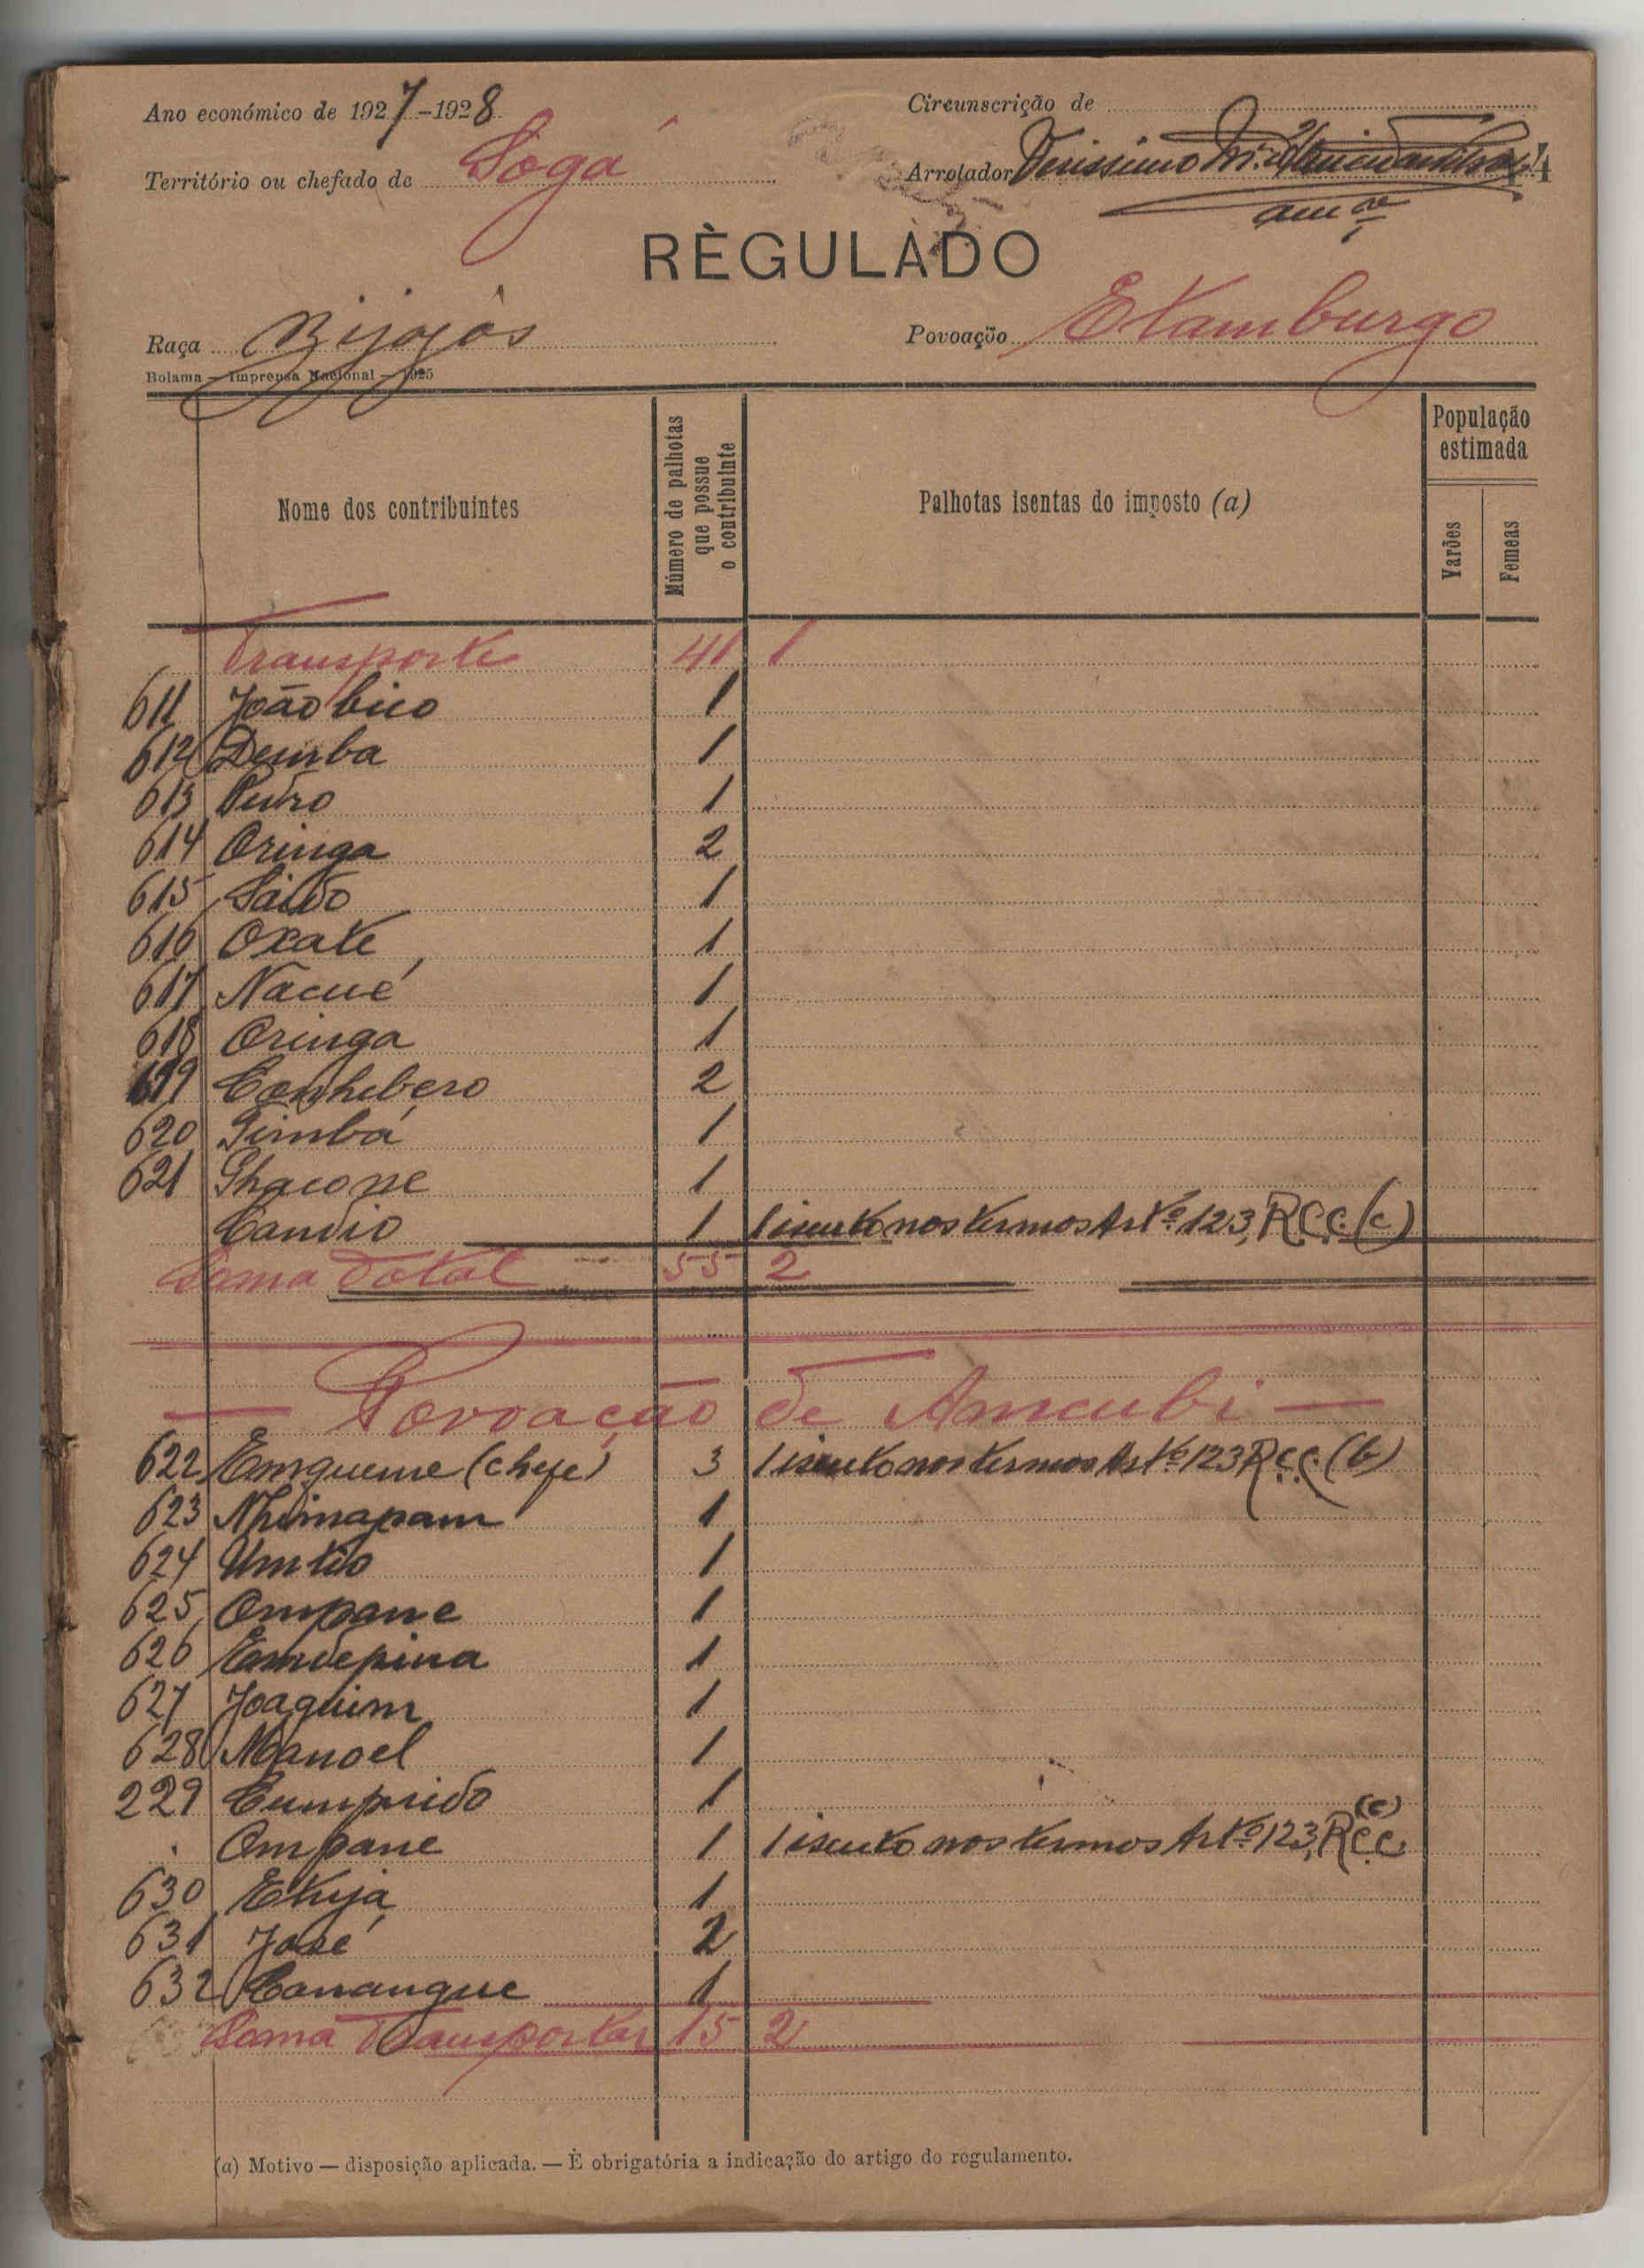 Ano económico de 1927-1928
Circunscrição de
Território ou chefado de Sogá
Arrolador Verissimo
RÈGULADO
Raça Bijagós
Povoação Etamburgo
Bolama — Imprensa Nacional — 1925
Nome dos contribuintes
Número de palhotas que possue o contribuinte
Palhotas isentas do imposto (a)
População estimada
Varões
Femeas
Transporte 41 1
611 João bico 1
612 Demba 1
613 Pedro 1
614 Oringa 2
615 Saido 1
616 Oxate 1
617 Nacué 1
618 Oringa 1
619 Canhebero 2
620 Timbá 1
621 Ghacone 1
Candio 1 1 isento nos termos Artº 123, R.C.C. (c)
Soma Total 55 2
— Povoação de Amcubi —
622 Emqueme (chefe) 3 1 isento nos termos Artº 123 R.C.C. (b)
623 Nhimapam 1
624 Umtio 1
625 Ompane 1
626 Emdepina 1
627 Joaquim 1
628 Manoel 1
229 Cumprido 1
Ompane 1 1 isento nos termos Artº 123, R.C.C. (c)
630 Etija 1
631 José 2
632 Canangue 1
Soma Transportar 15 2
(a) Motivo — disposição aplicada. — É obrigatória a indicação do artigo do regulamento.